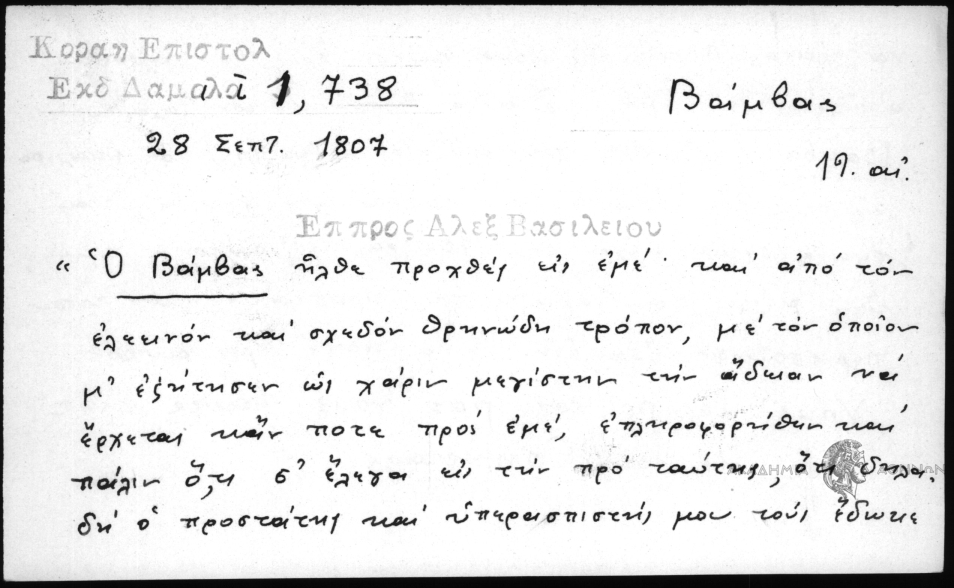 Κοραη Επιστολ
Εκδ Δαμαλᾶ 1, 738
Βάμβας
28 Σεπτ. 1807
19. αἰ.
Επ προς Αλεξ Βασιλειου
“Ὁ Βάμβας ἦλθε προχθές εἰς ἐμέ· καί ἀπό τόν
ἐλεεινόν καί σχεδόν θρηνώδη τρόπον, μέ τόν ὁποῖον
μ' ἐζήτησεν ὡς χάριν μεγίστην τήν ἄδειαν νά
ἔρχεται κἄν ποτε πρός ἐμέ, ἐπληροφορήθην καί
πάλιν ὅ,τι σ' ἔλεγα εἰς τήν πρό ταύτης, ὅτι δηλα-
δή ὁ προστάτης καί ὑπερασπιστής μου τούς ἔδωκε
ΑΚΑΔΗΜΙΑ ΑΘΗΝΩΝ